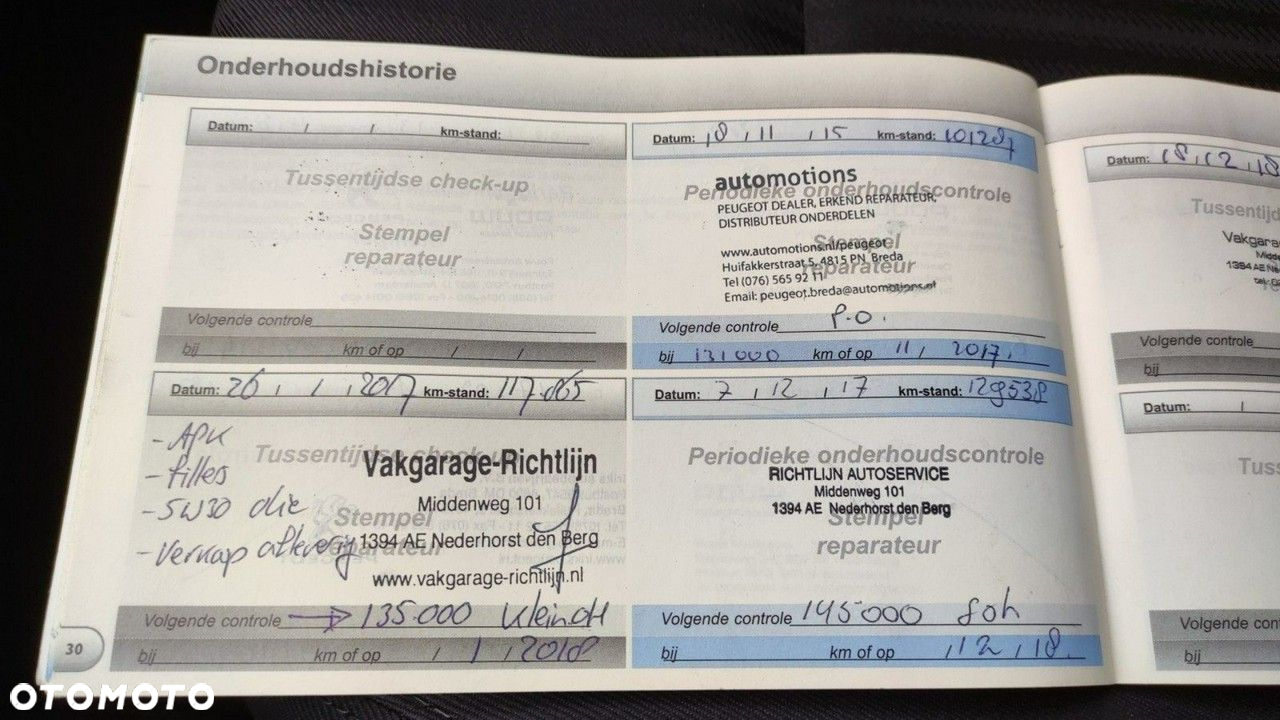 Onderhoudshistorie
Datum: / / km-stand:
Tussentijdse check-up
Stempel
reparateur
Volgende controle
bij km of op / /
Datum: 18 / 11 / 15 km-stand: 101287
automotions
Periodieke onderhoudscontrole
PEUGEOT DEALER, ERKEND REPARATEUR,
DISTRIBUTEUR ONDERDELEN
Stempel
reparateur
www.automotions.nl/peugeot
Huifakkerstraat 5, 4815 PN Breda
Tel (076) 565 92 11
Email: peugeot.breda@automotions.nl
Volgende controle P.O.
bij 131000 km of op 11 / 2017.
Datum: 26 / 1 / 2017 km-stand: 117.865
- APK
- filters
- 5W30 olie
- Verkoop aflevering
Tussentijdse check-up
Stempel
reparateur
Vakgarage-Richtlijn
Middenweg 101
1394 AE Nederhorst den Berg
www.vakgarage-richtlijn.nl
Volgende controle → 135.000 Klein OH
bij km of op / 1 / 2018
Datum: 7 / 12 / 17 km-stand: 129538
Periodieke onderhoudscontrole
RICHTLIJN AUTOSERVICE
Middenweg 101
1394 AE Nederhorst den Berg
Stempel
reparateur
Volgende controle 145000
bij km of op / 12 / 18.
30
Datum: 18 / 12 / 18
Tussentijd
Vakgara
1394 AE Ne
Volgende controle
bij
Datum: /
Tuss
Volgende con
bij
OTOMOTO